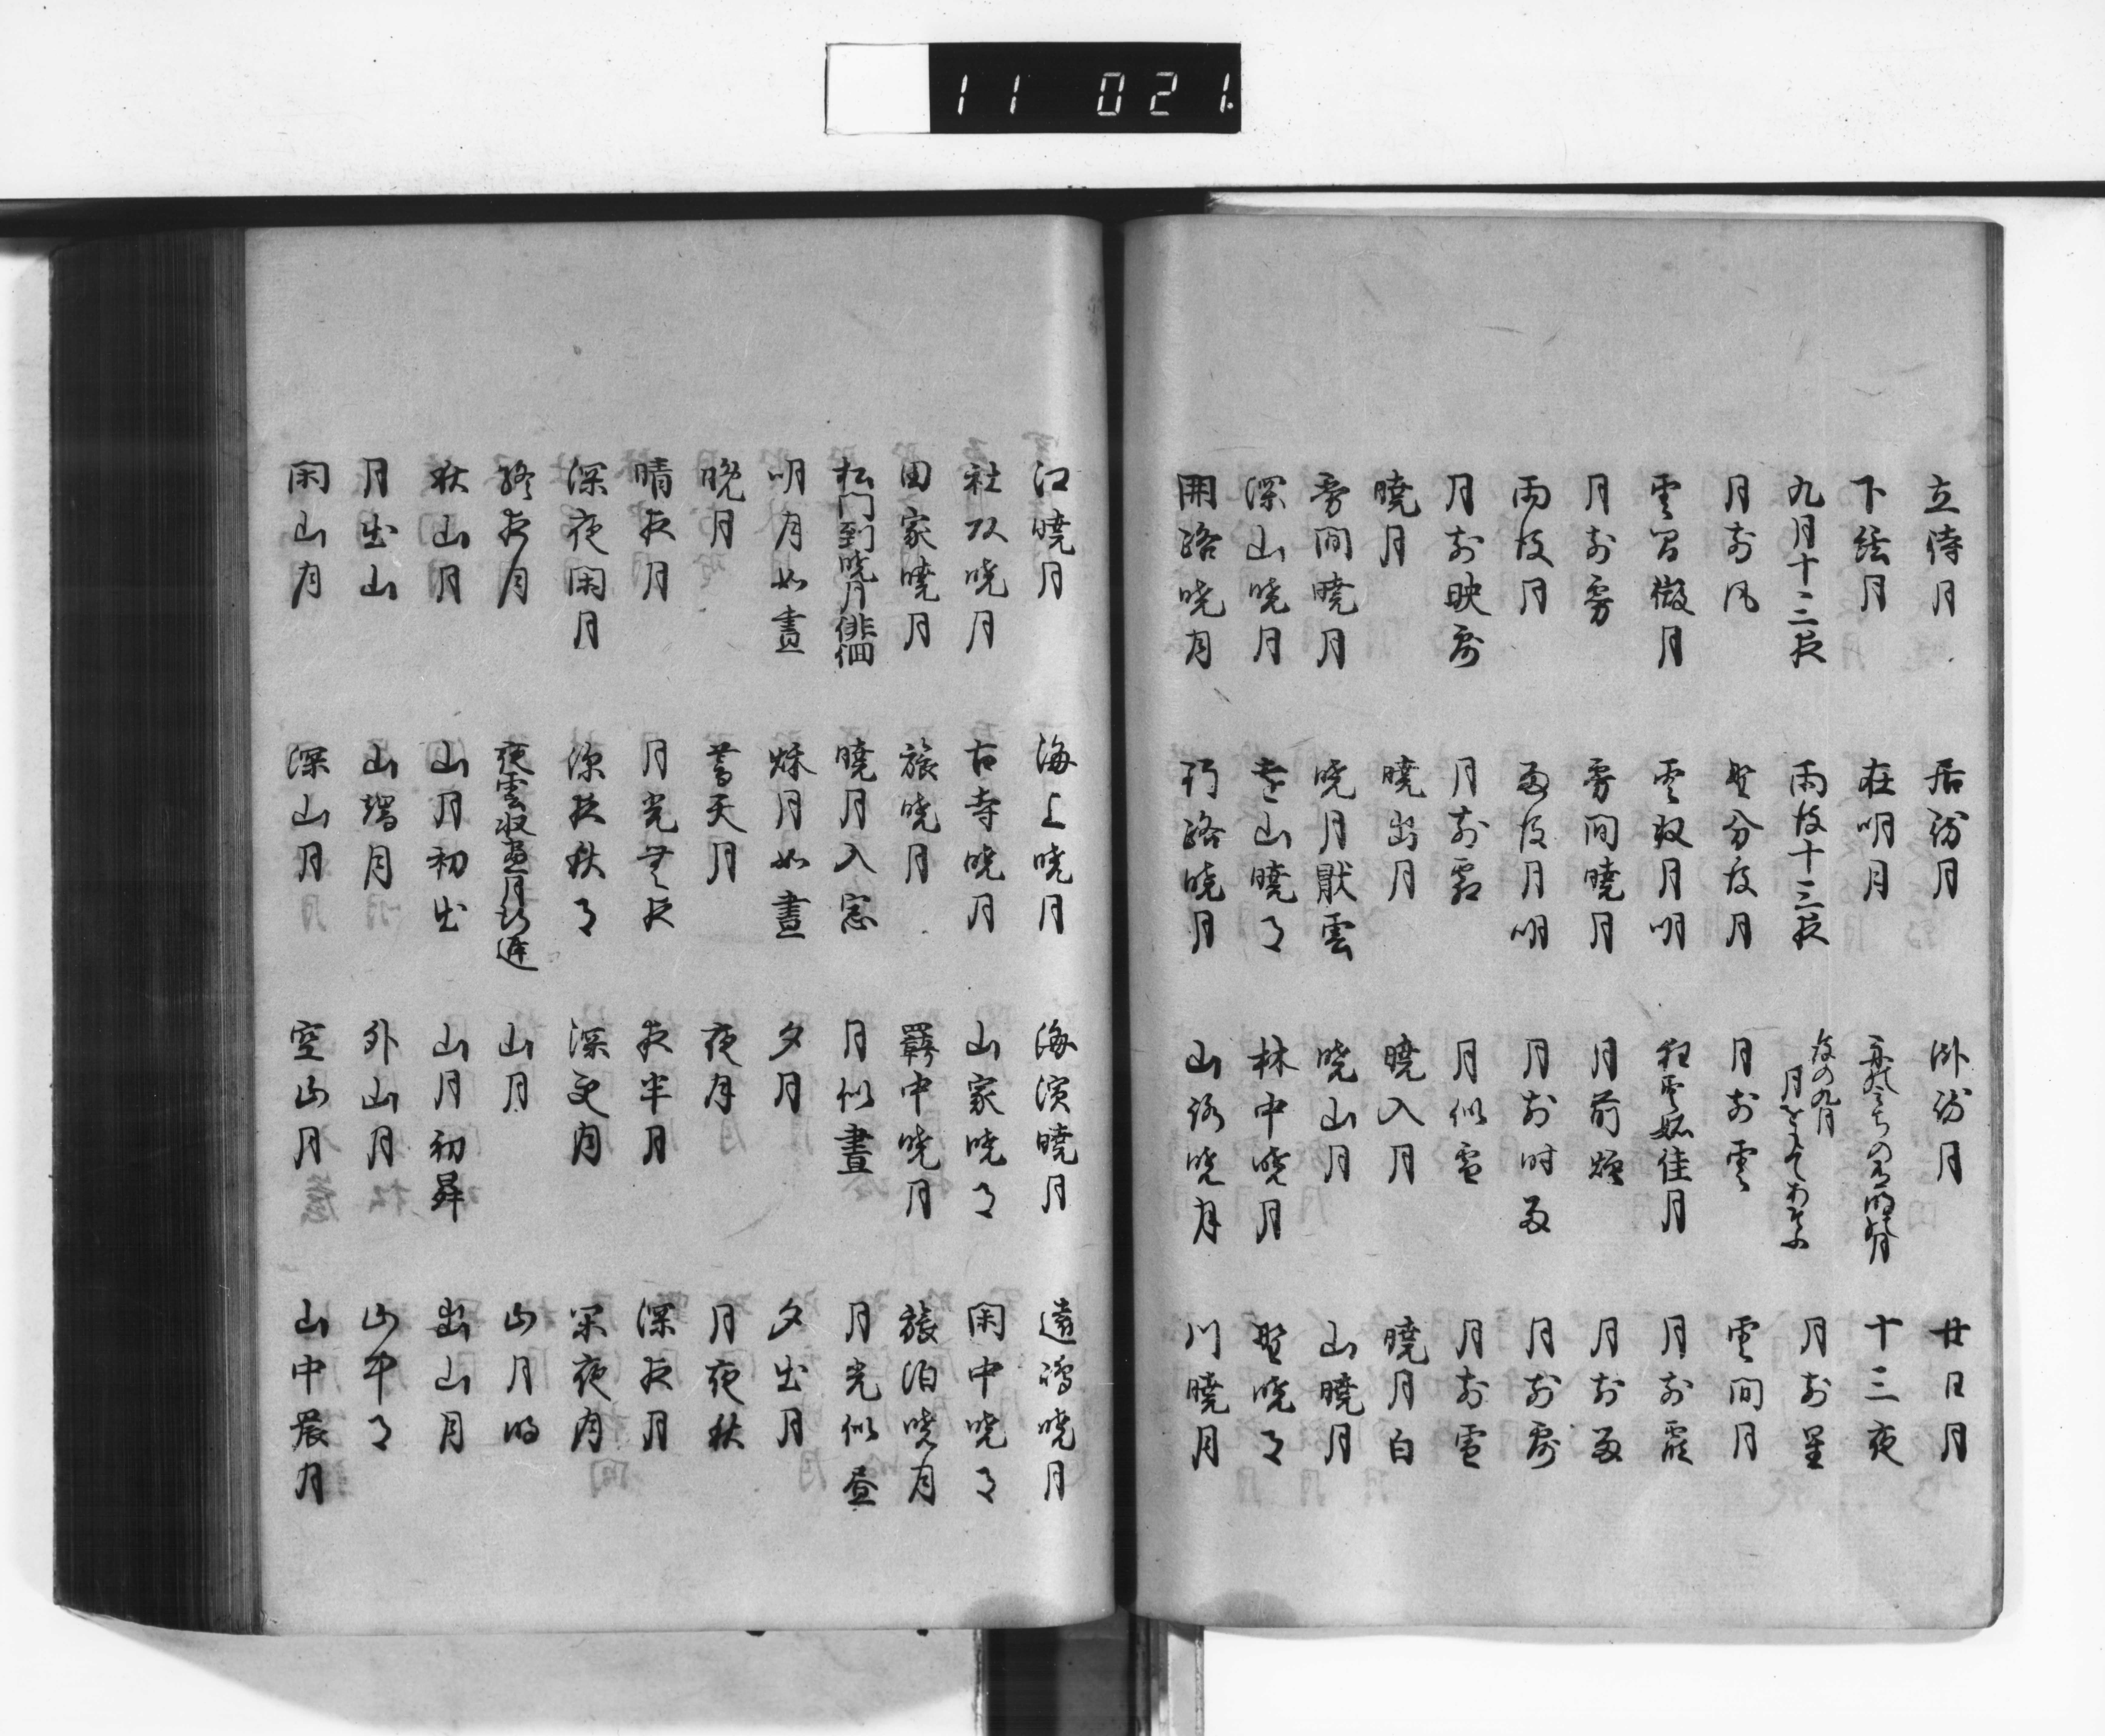 立待月 居待月 臥待月 廿日月
下絃月 在明月 の有明月 十三夜
九月十三夜 雨後十三夜 後の九月 月をみてあそふ 月前星
月前風 野分後月 月前雲 雲間月
雲間微月 雲収月明 狂雲妬佳月 月前霞
月前雰 雰間暁月 月前烟 月前雨
雨後月 雨後月明 月前時雨 月前露
月前映露 月前霜 月似雪 月前雪
暁月 暁出月 暁入月 暁月白
雰間暁月 暁月厭雲 暁山月 山暁月
深山暁月 遠山暁月 林中暁月 野暁月
関路暁月 行路暁月 山路暁月 川暁月
江暁月 海上暁月 海濱暁月 遠嶋暁月
社頭暁月 古寺暁月 山家暁月 閑中暁月
田家暁月 旅暁月 羇中暁月 旅泊暁月
松門到暁月徘徊 暁月入窓 月似晝 月光似昼
明月如晝 秋月如晝 夕月 夕出月
晩月 暮天月 夜月 月夜秋
晴夜月 月光無夜 夜半月 深夜月
深夜閑月 深夜秋月 深更月 夜月
終夜月 夜雲収盡月行遅 山月 山月明
秋山月 山月初出 山月初昇 出山月
月出山 山端月 外山月 山中月
閑山月 深山月 空山月 山中晨月
11 021